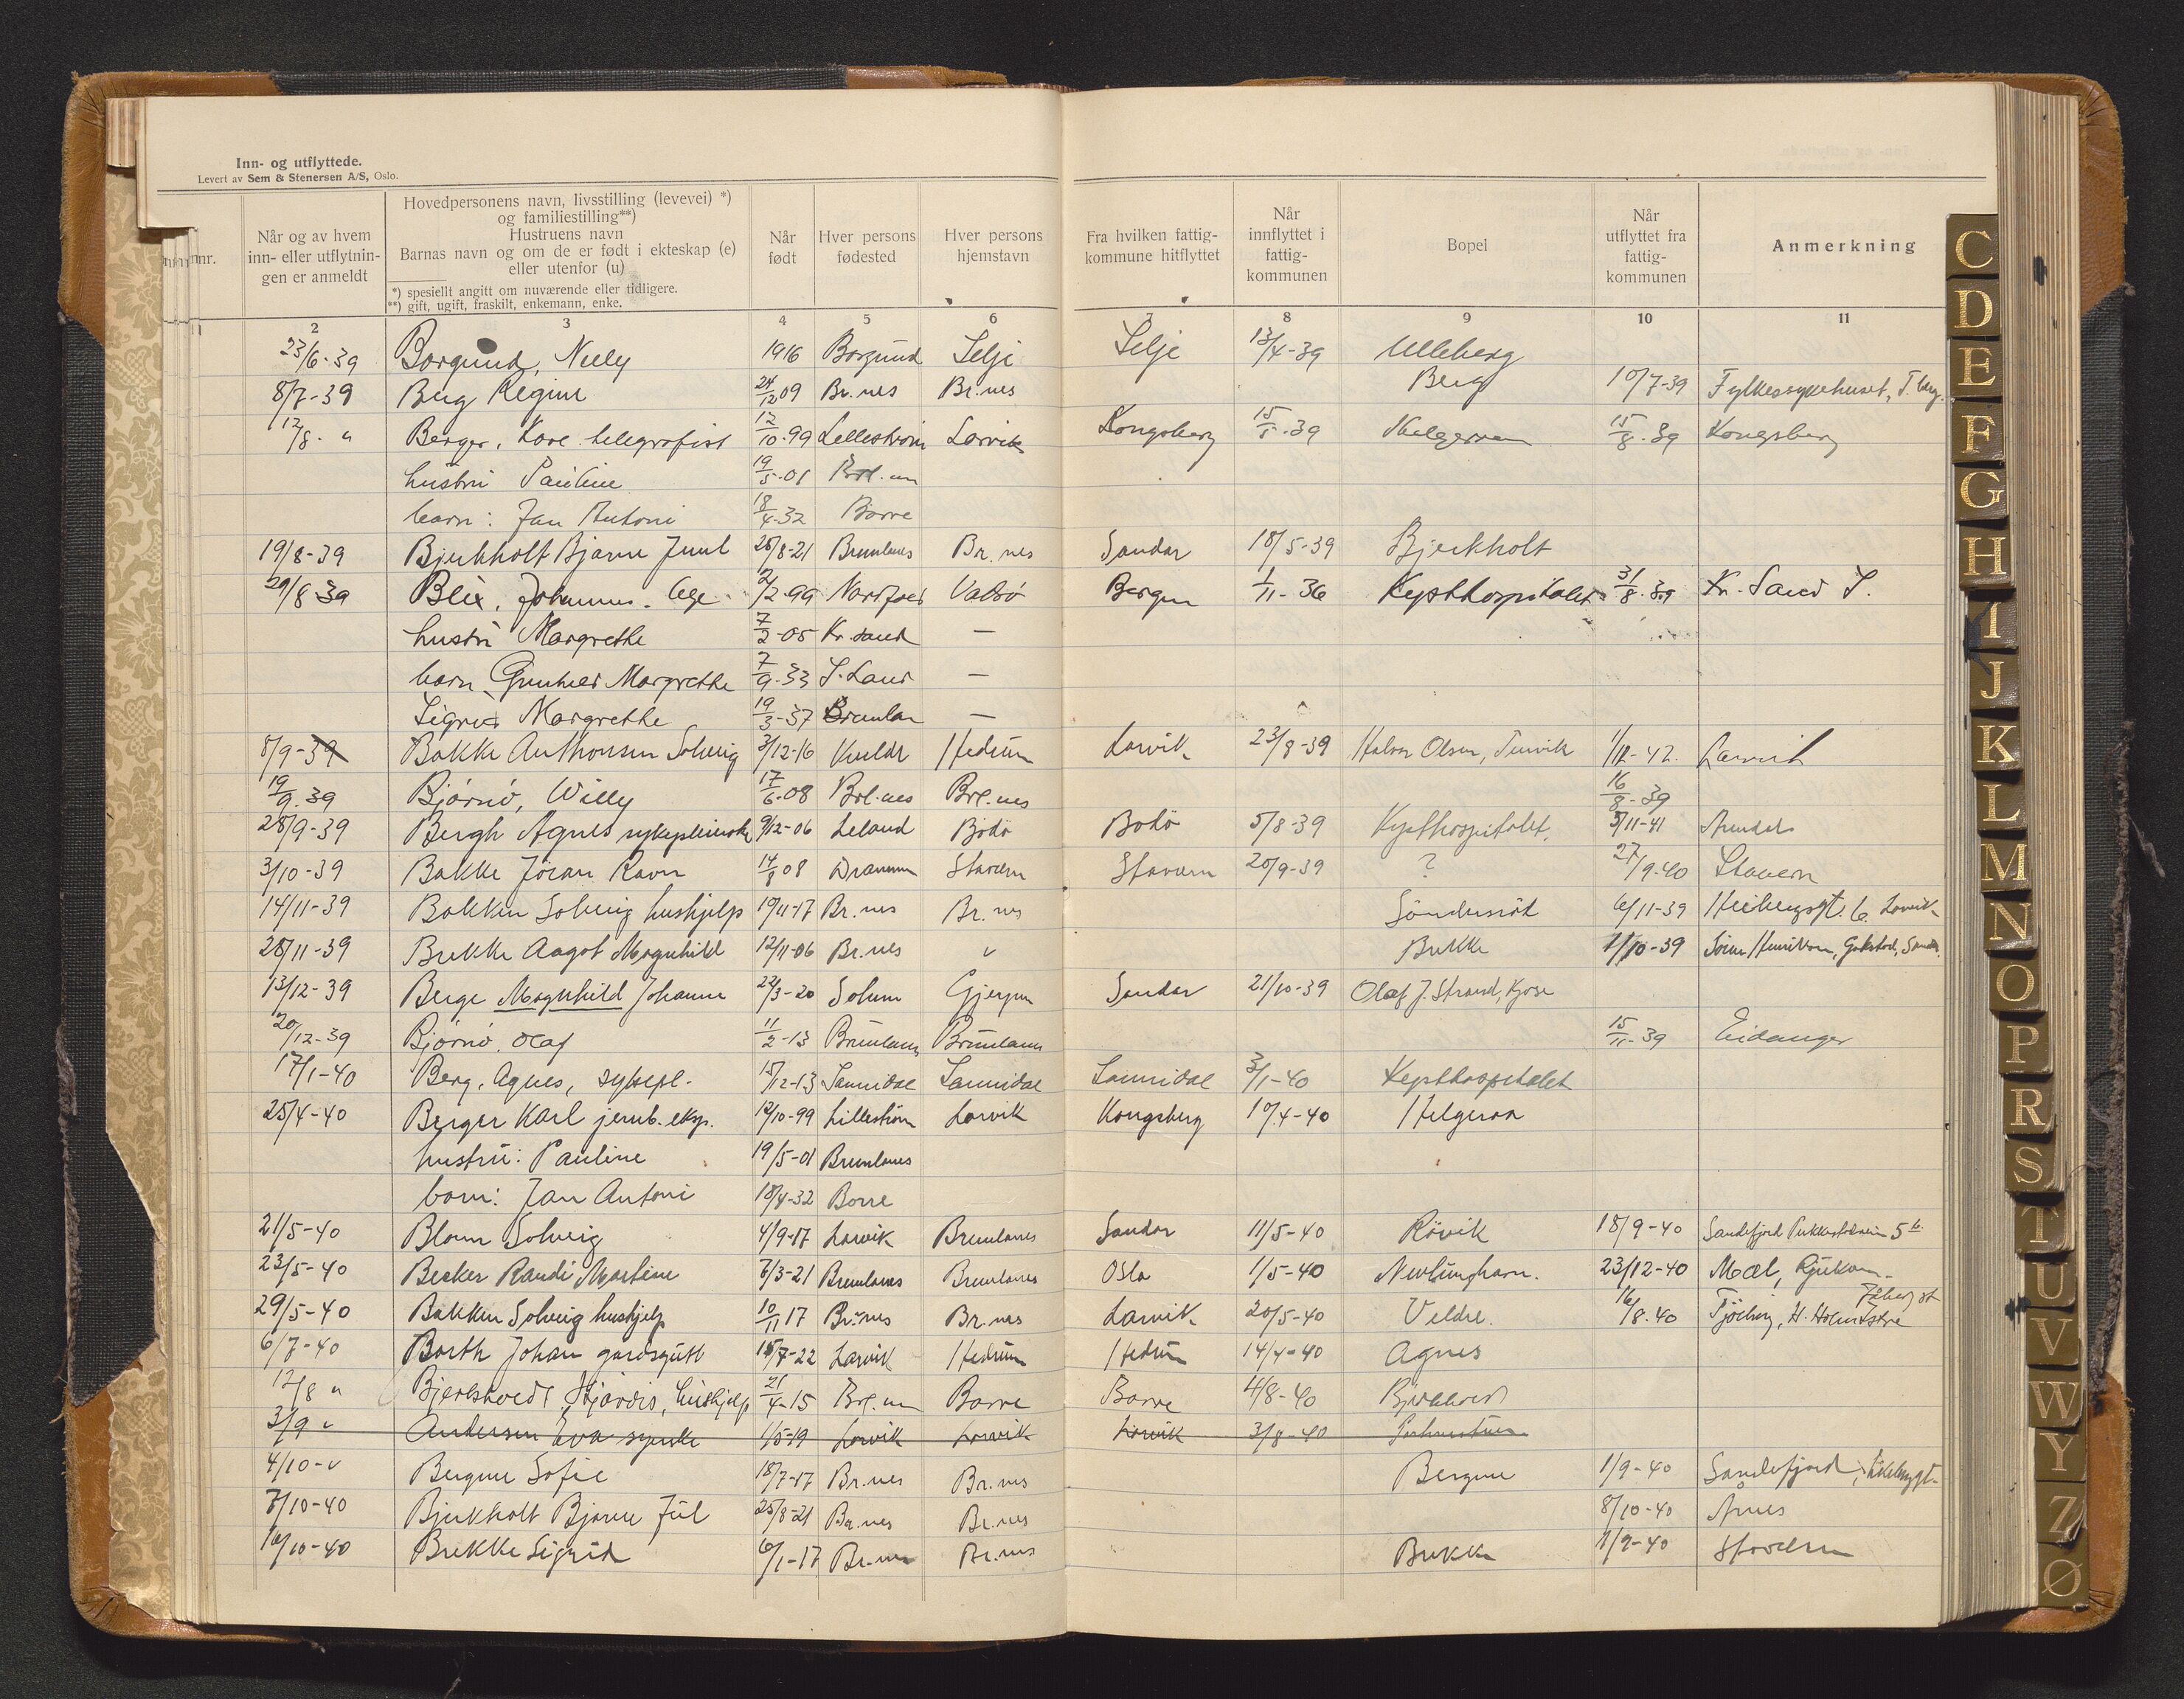 Inn- og utflyttede.
Levert av Sem & Stenersen A/S, Oslo.
nr. Når og av hvem inn- eller utflytnin- gen er anmeldt Hovedpersonens navn, livsstilling (levevei) *) og familiestilling**) Hustruens navn Barnas navn og om de er født i ekteskap (e) eller utenfor (u) *) spesiellt angitt om nuværende eller tidligere. **) gift, ugift, fraskilt, enkemann, enke. Når født Hver persons fødested Hver persons hjemstavn Fra hvilken fattig- kommune hitflyttet Når innflyttet i fattig- kommunen Bopel Når utflyttet fra fattig- kommunen Anmerkning
1 2 3 4 5 6 7 8 9 10 11
23/6-39 Borgund, Nelly 1916 Borgund Selje Selje 13/4-39 Ulleberg
8/7-39 Berg Regine 24/12 09 Br.nes Br.nes Berg 10/7-39 Fylkessykehuset, T.berg.
12/8 - " Berger, Kare telegrafist 12/10-99 Lellestrøm Larvik Kongsberg 15/5-39 Helgeroen 15/8-39 Kongsberg
hustru Pauline 19/5-01 Brl.nes
barn: Jan Antoni 18/4-32 Borre
19/8-39 Bjerkholt Bjarne Juul 25/8-21 Brunlanes Br.nes Sandar 18/5-39 Bjerkholt
29/8-39 Blix, Johannes. lege 2/2-99 Nordfjord Vatsö Bergen 1/11-36 Kysthospitalet 31/8-39 Kr. Sand S.
hustru Margrethe 7/2-05 Kr.sand —
barn Gunhild Margrethe 7/9-33 S. Land —
Sigrid Margrethe 19/3-37 Brunlan —
8/9-39 Bakke Anthonsen Solveig 3/12-16 Kvelde Hedrum Larvik 23/8-39 Halvor Olsen, Tenvik 1/11-42. Larvik
19/9-39 Bjørnö, Willy 17/6-08 Brl.nes Brl.nes 16/8-39
28/9-39 Bergh Agnes sykepleierske 9/12-06 Leland Bodö Bodö 5/8-39 Kysthospitalet. 5/11-41 Arendal
3/10-39 Bakke Jöran Ravn 14/8 08 Drammen Stavern Stavern 20/9-39 ? 27/9-40 Stavern
14/11-39 Bakken Solveig hushjelp 10/11-17 Br.nes Br.nes Söndersröd 6/11-39 Heibergsgt. 6. Larvik
28/11-39 Brekke Aagot Magnhild 12/11-06 Br.nes " Brekke 1/10-39 Sören Henriksen, Gokstad, Sandar.
13/12-39 Berge Magnhild Johanne 22/3-20 Solum Gjerpen Sandar 21/10-39 Olaf J. Strand, Kjose
20/12-39 Bjørnö. Olaf 11/2-13 Brunlanes Brunlanes 15/11-39 Eidanger
17/1-40 Berg, Agnes, sykepl. 15/12-13 Sannidal Sannidal Sannidal 3/1-40 Kysthospitalet
25/4-40 Berger Karl jernb. eksp. 12/10-99 Lilleström Larvik Kongsberg 10/4-40 Helgeroa
hustru: Pauline 19/5-01 Brunlanes
barn: Jan Antoni 18/4-32 Borre
21/5-40 Blom Solveig 4/9-17 Larvik Brunlanes Sandar 11/5-40 Rövik 18/9-40 Sandefjord
23/5-40 Becker Randi Martine 7/3-21 Brunlanes Brunlanes Oslo 1/5-40 Nevlunghavn. 23/12-40 Mæl, Rjukan.
29/5-40 Bakken Solveig hushjelp 10/11 17 Br.nes Br.nes Larvik 20/5-40 Veldre. 16/8-40 Tjölling, H.
6/7-40 Barth Johan gardsgutt 15/7-22 Larvik Hedrum Hedrum 14/4-40 Agnes
12/8 " Bjerkhoedt Hjørdis, hushjelp 21/4-15 Brl.nes Borre Borre 4/8-40
3/9 " Andersen Eva syerske 1/5-19 Larvik Larvik Larvik 3/8-40
4/10-" Bergene Sofie 18/7-17 Br.nes Br.nes Bergene 1/9-40 Sandefjord,
7/10-40 Bjerkholt Bjarne Jul 25/8-21 Br.nes Br.nes 8/10-40 Årnes
16/10-40 Brekke Sigrid 6/1-17 Br.nes Br.nes Brekke 1/9-40 Stavern
C
D
E
F
G
H
I
J
K
L
M
N
O
P
R
S
T
U
V
W
Y
Z
Ø